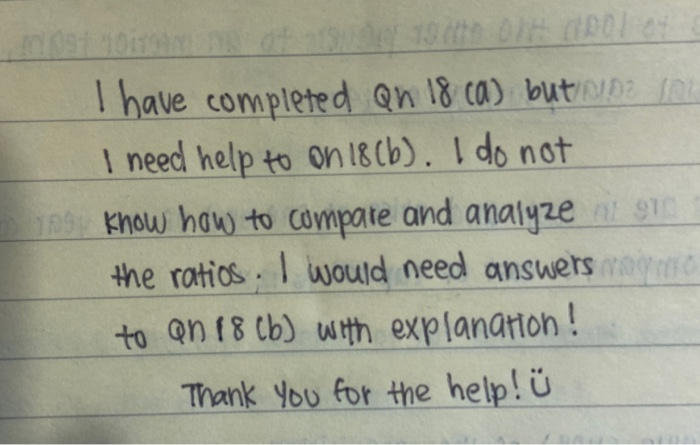 I have completed Qn 18 (a) but
I need help to Qn18(b). I do not
know how to compare and analyze
the ratios. I would need answers
to Qn 18 (b) with explanation!
Thank you for the help! Ü